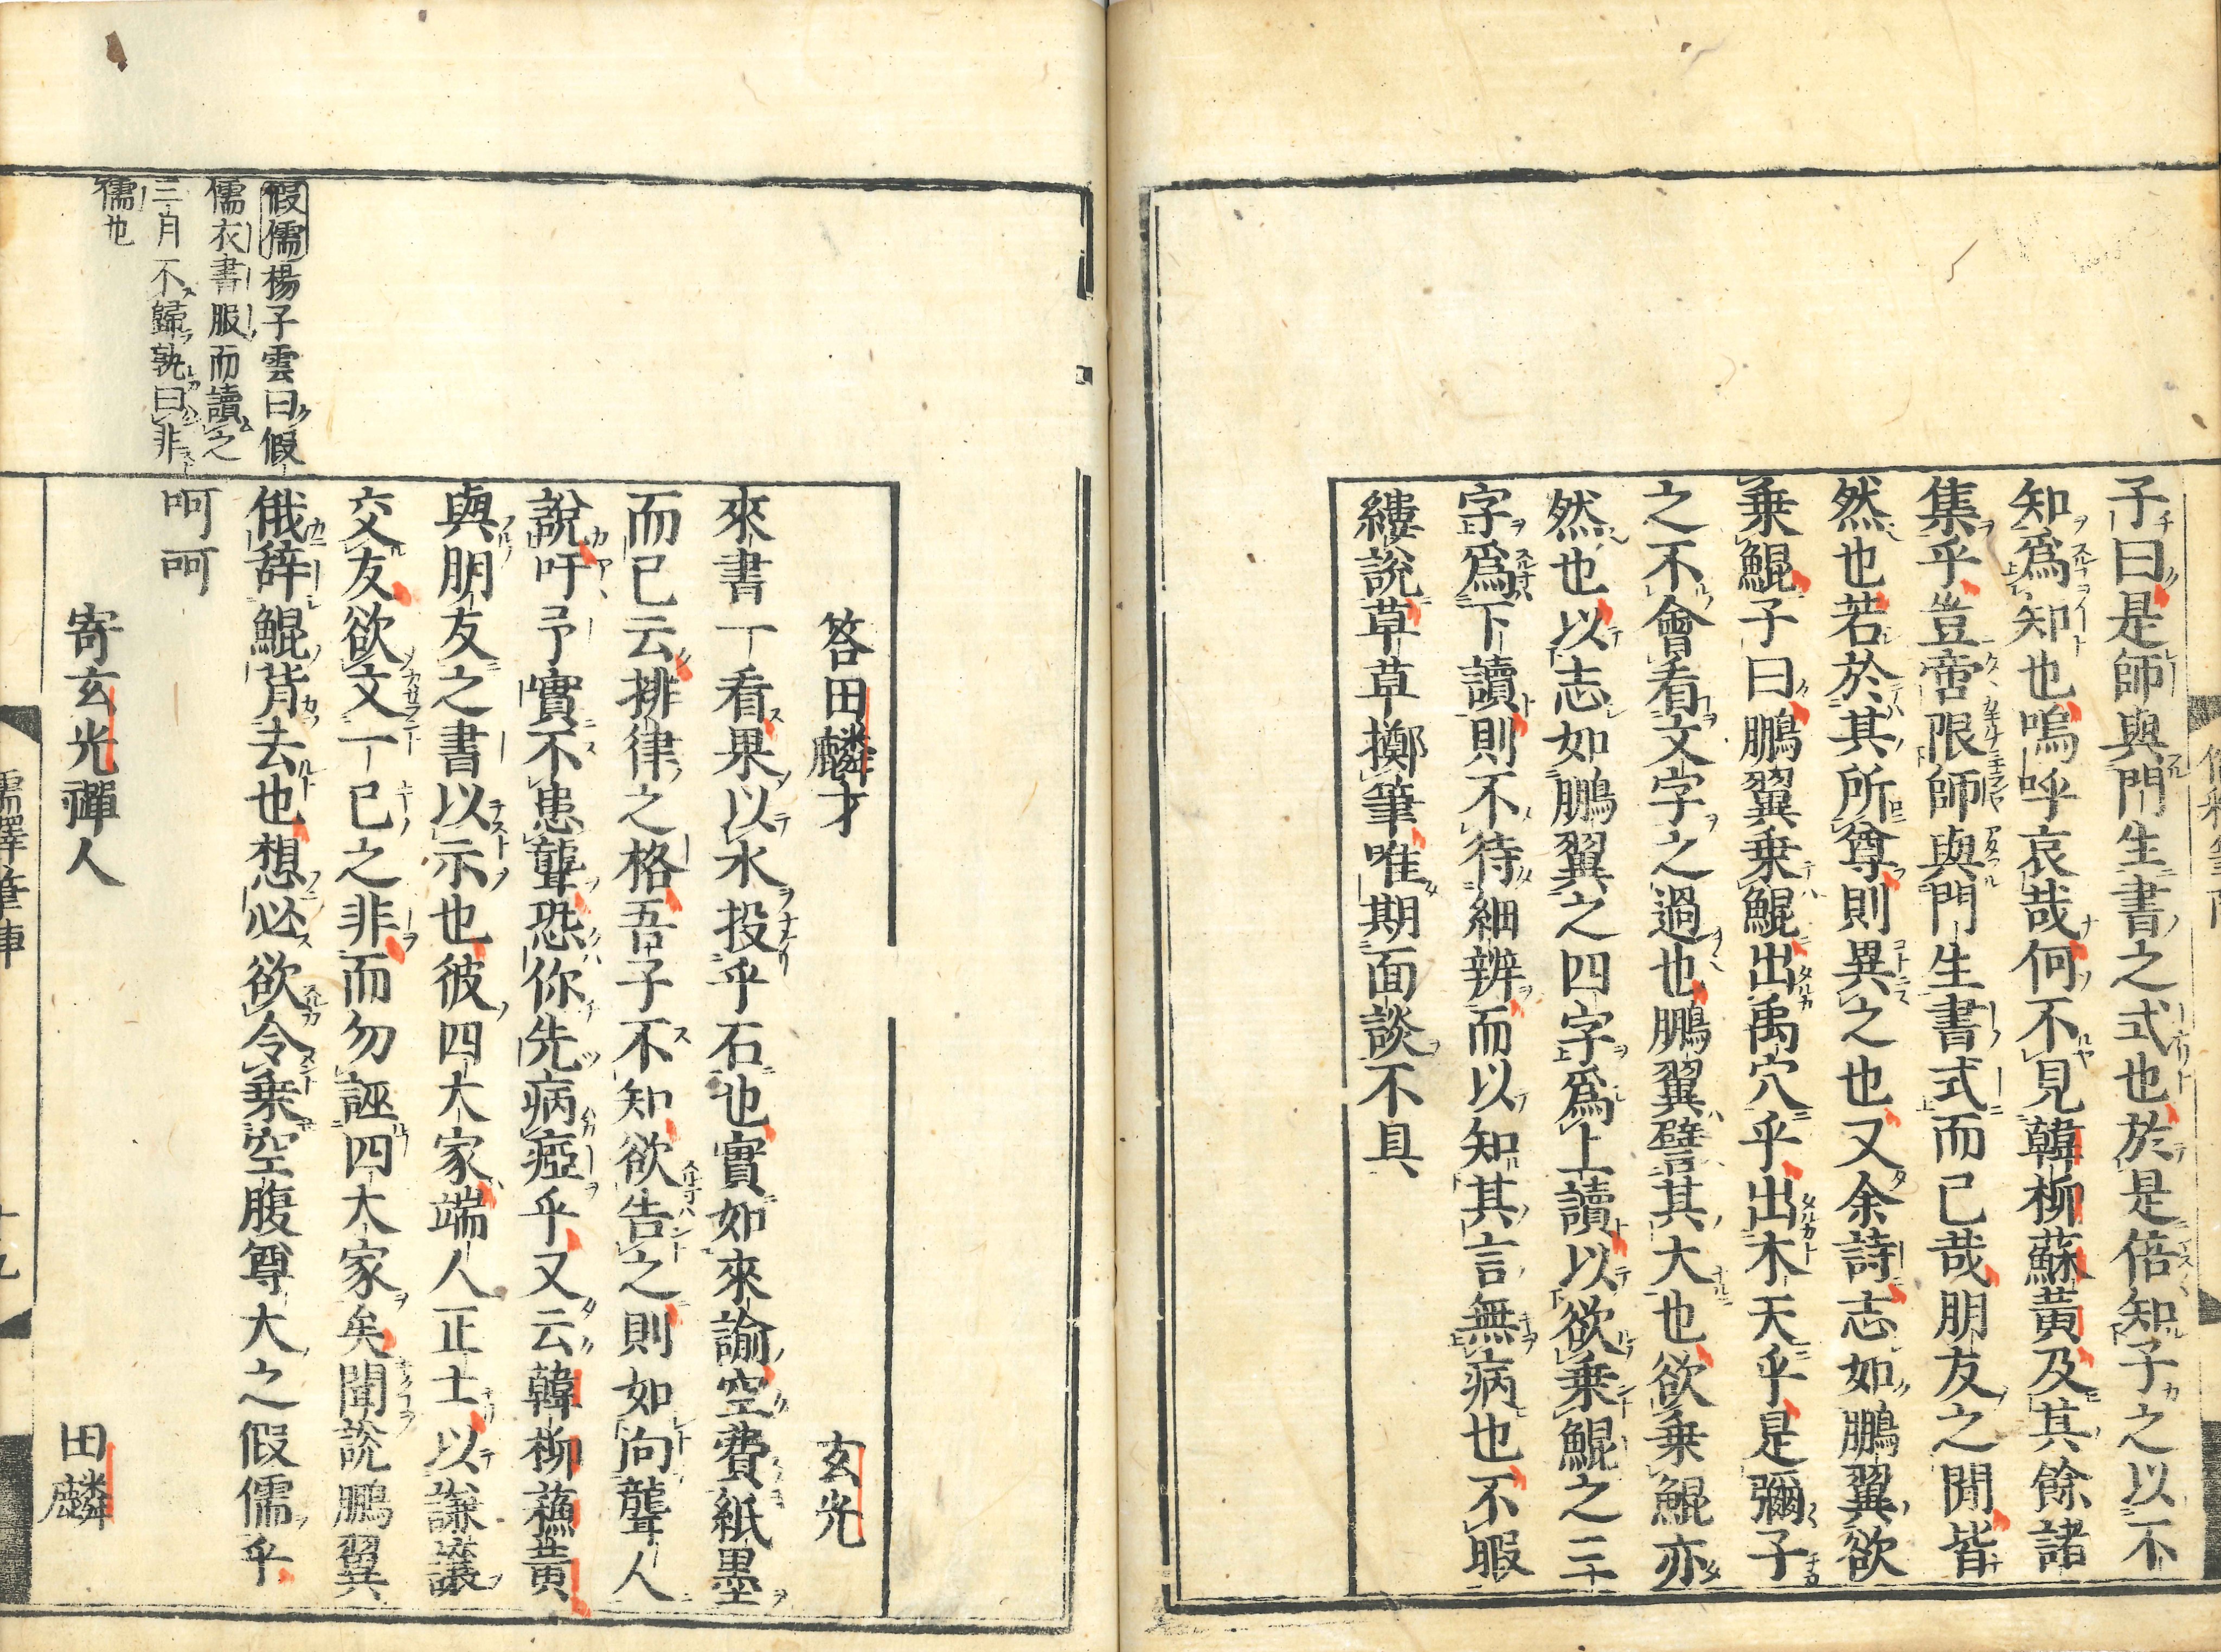 子曰是師與門生書之式也於是倍知子之以不
知爲知也嗚呼哀哉何不見韓柳蘇黃及其餘諸
集乎豈啻限師與門生書式而已哉朋友之間皆
然也若於其所尊則異之也又余詩志如鵬翼欲
乗鯤子曰鵬翼乗鯤出禹穴乎出木天乎是彌子
之不會看文字之過也鵬翼譬其大也欲乗鯤亦
然也以志如鵬翼之四字爲上讀以欲乗鯤之三
字爲下讀則不待細辨而以知其言無病也不暇
縷說草草擲筆唯期面談不具
答田麟才
玄光
來書一一看果以水投乎石也實如來諭空費紙墨
而已云排律之格吾子不知欲告之則如向聾人
說吁予實不患聾恐你先病瘂乎又云韓柳蘓黃
與朋友之書以示也彼四大家端人正士以謙讓
交友欲文一己之非而勿誣四大家矣聞說鵬翼
俄辞鯤背去也想必欲令乗空腹尊大之假儒乎
呵呵
寄玄光禪人
田麟
假儒楊子雲曰假
儒衣書服而讀之
三月不歸孰曰非
儒也